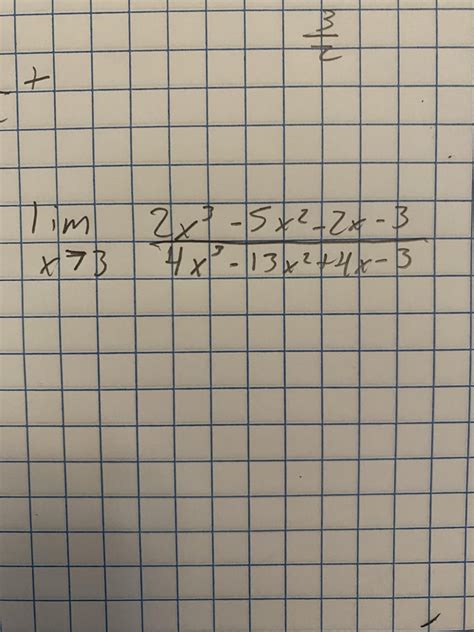 3
2
+
lim 2x³ - 5x² - 2x - 3
x→3 4x³ - 13x² + 4x - 3